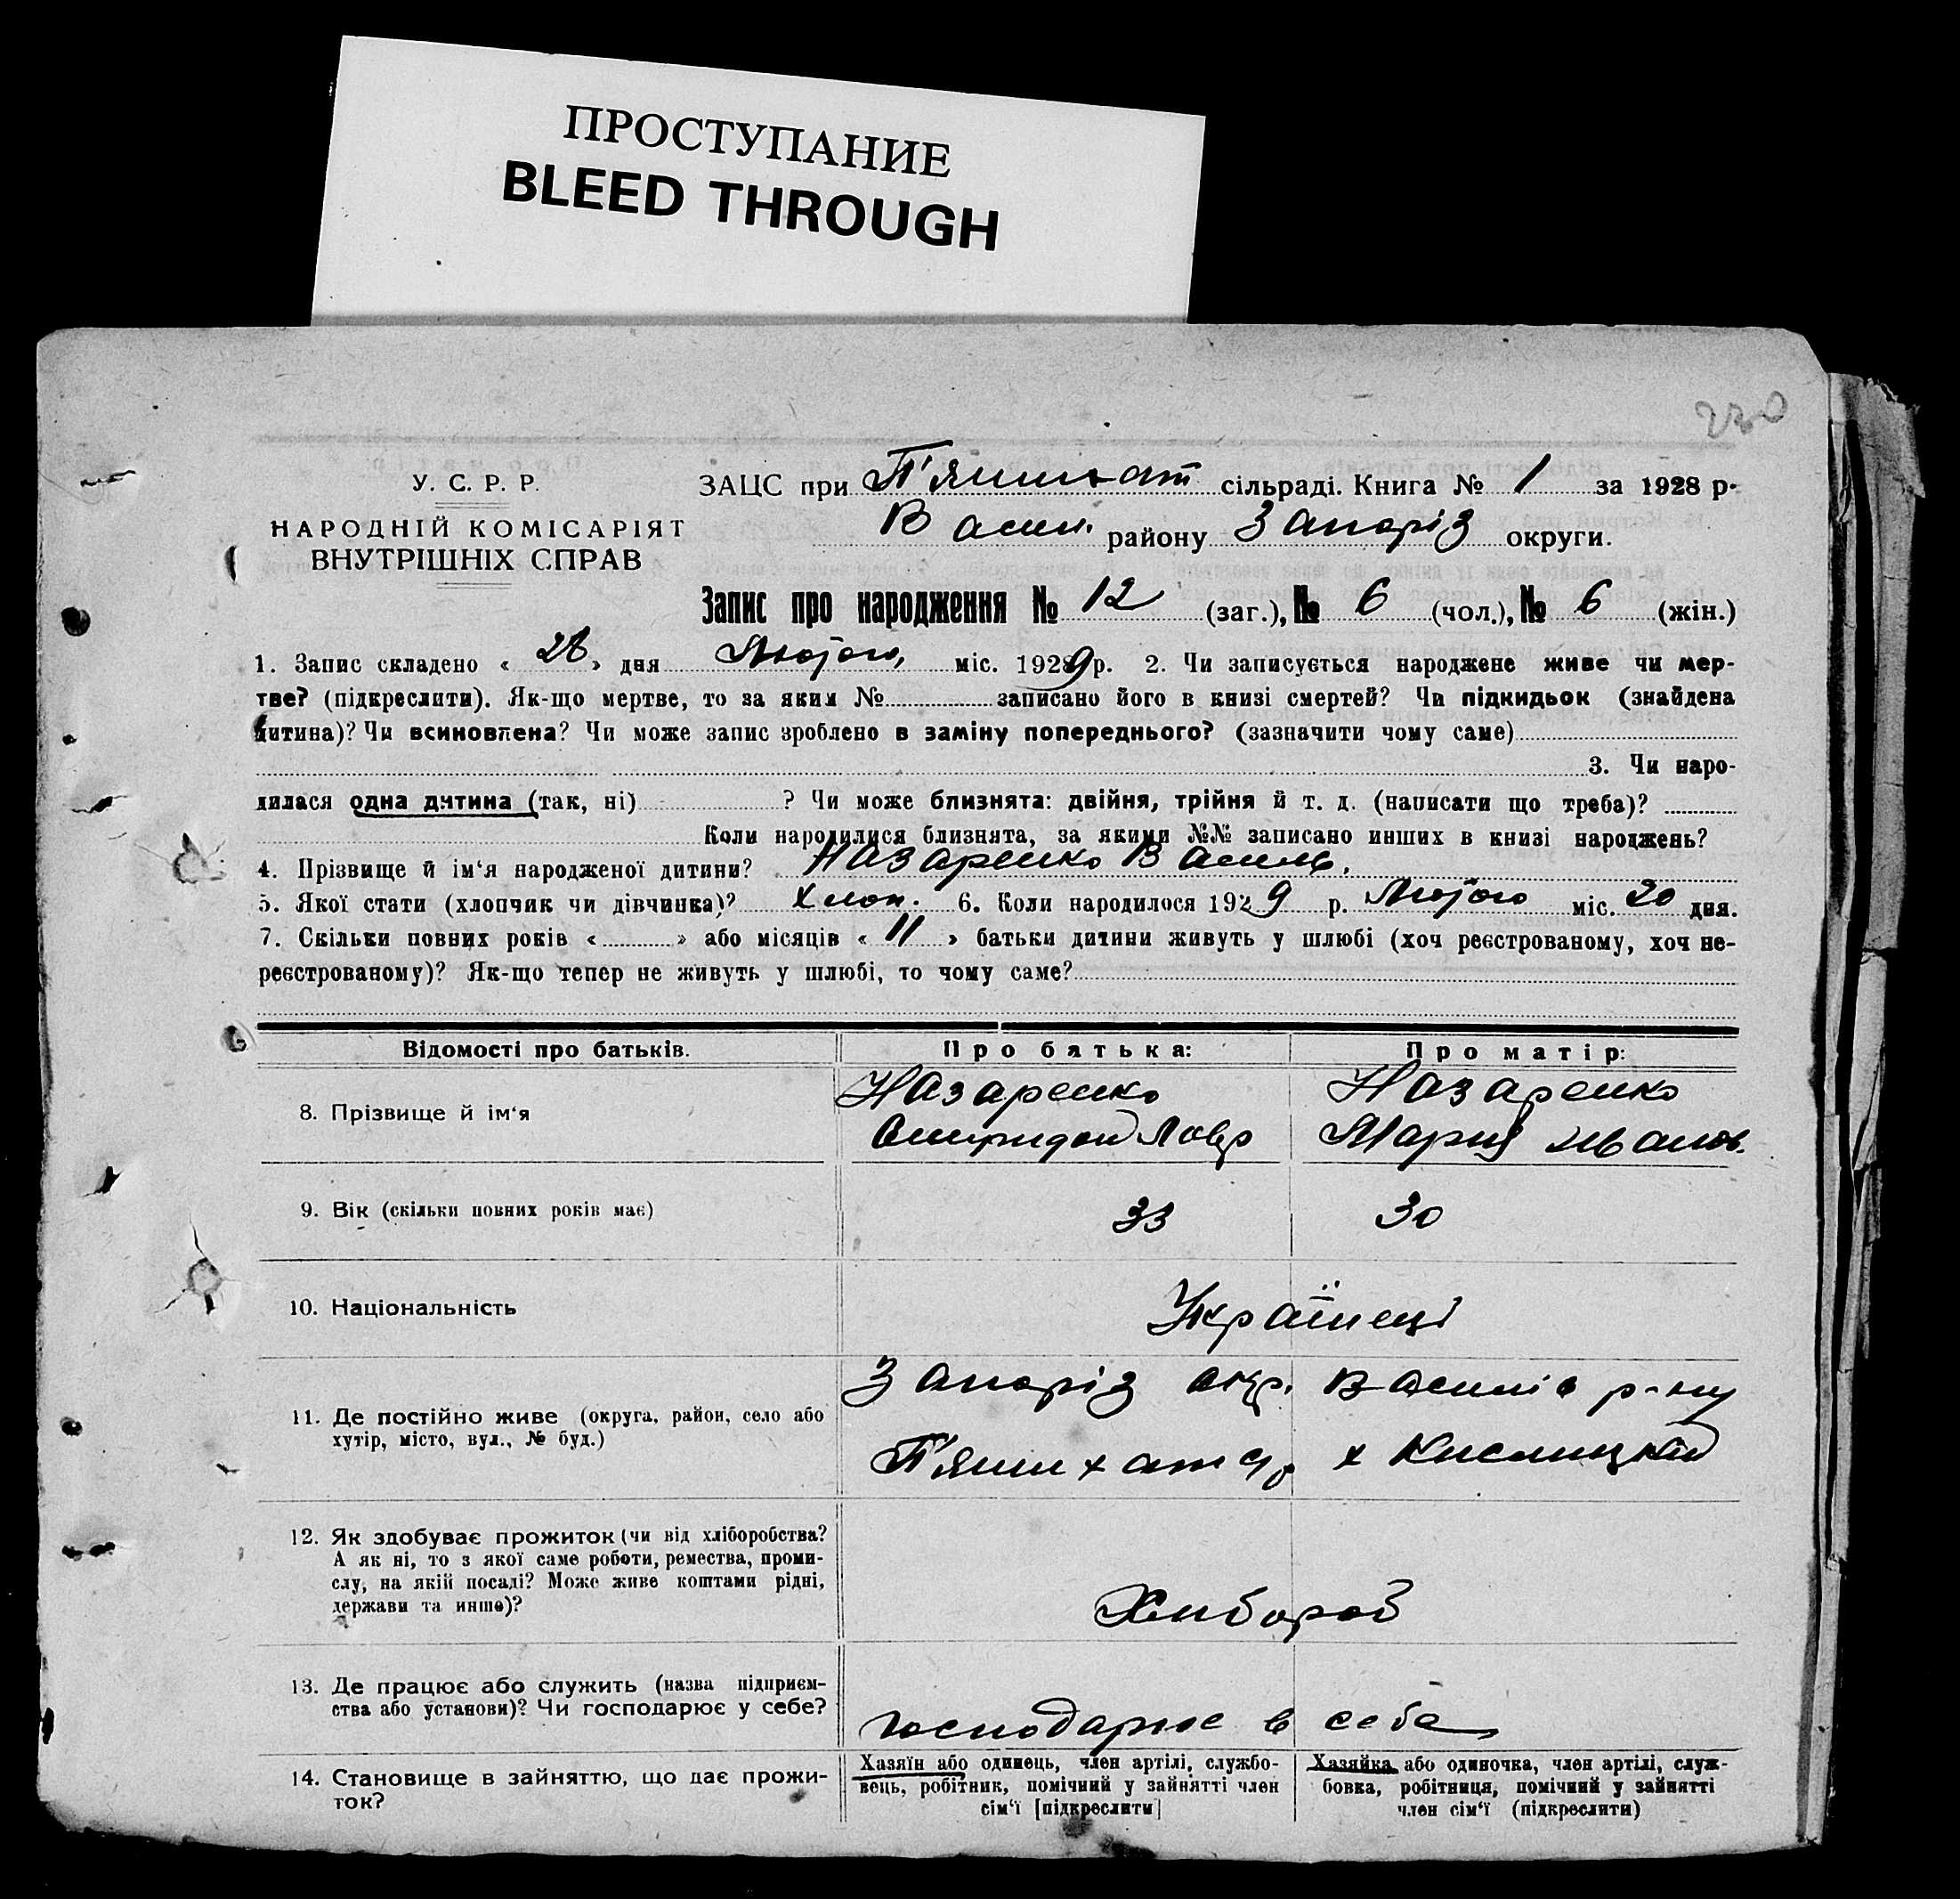 ПРОСТУПАНИЕ
BLEED THROUGH
230
У. С. Р. Р.
НАРОДНІЙ КОМІСАРІЯТ
ВНУТРІШНІХ СПРАВ
ЗАЦС при П'яшихат сільраді. Книга № 1 за 1928 р.
Васил. району Запоріз округи.
Запис про народження № 12 (заг.), № 6 (чол.), № 6 (жін.)
1. Запис складено « 28 » дня Лютого, міс. 1929 р. 2. Чи записується народжене живе чи мер-
тве? (підкреслити). Як-що мертве, то за яким № записано його в книзі смертей? Чи підкидьок (знайдена
дитина)? Чи всиновлена? Чи може запис зроблено в заміну попереднього? (зазначити чому саме)
3. Чи наро-
дилася одна дитина (так, ні) ? Чи може близнята: двійня, трійня й т. д. (написати що треба)?
Коли народилися близнята, за якими №№ записано инших в книзі народжень?
4. Прізвище й ім'я народженої дитини? Назаренко Василь.
5. Якої стати (хлопчик чи дівчинка)? Хлоп. 6. Коли народилося 1929 р. Лютого міс. 20 дня.
7. Скільки повних років « » або місяців « 11 » батьки дитини живуть у шлюбі (хоч реєстрованому, хоч не-
реєстрованому)? Як-що тепер не живуть у шлюбі, то чому саме?
Відомості про батьків. Про батька: Про матір:
8. Прізвище й ім'я
Назаренко Назаренко
Спиридон Мария Иванов.
9. Вік (скільки повних років має) 33 30
10. Національність Українеці
11. Де постійно живе (округа, район, село або
хутір, місто, вул., № буд.)
Запоріз окр. Василів р-ну
П'яшихат х Кислицкий
12. Як здобуває прожиток (чи від хліборобства?
А як ні, то з якої саме роботи, ремества, проми-
слу, на якій посаді? Може живе коштами рідні,
держави та инше)?
Хлибороб
13. Де працює або служить (назва підприєм-
ства або установи)? Чи господарює у себе?
господарює в себе
14. Становище в зайняттю, що дає прожи-
ток?
Хазяїн або одинець, член артілі, службо-
вець, робітник, помічний у зайнятті член
сім'ї [підкреслити]
Хазяйка або одиночка, член артілі, служ-
бовка, робітниця, помічний у зайнятті
член сім'ї (підкреслити)